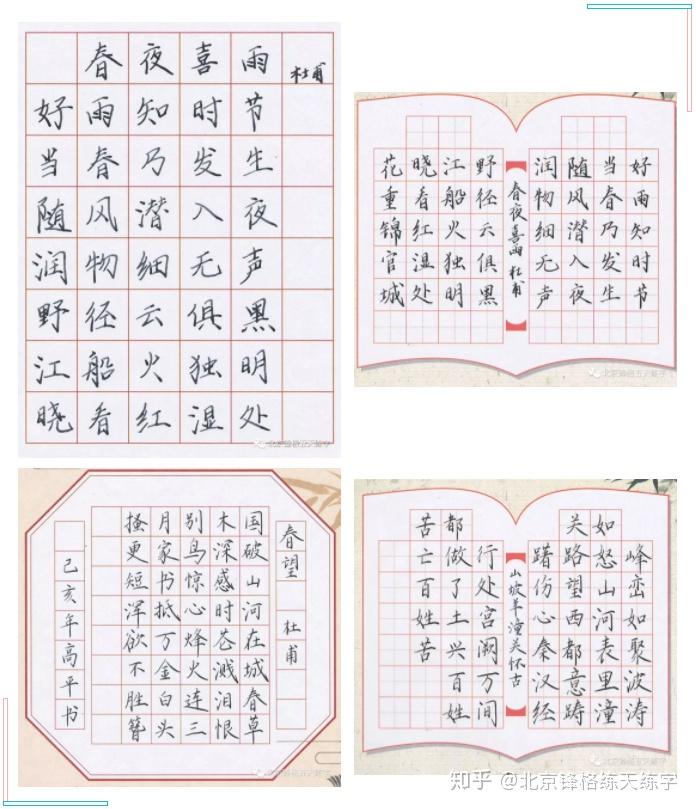 春夜喜雨 杜甫
好雨知时节
当春乃发生
随风潜入夜
润物细无声
野径云俱黑
江船火独明
晓看红湿处
北京锋格五天练字
好雨知时节
当春乃发生
随风潜入夜
润物细无声
春夜喜雨 杜甫
野径云俱黑
江船火独明
晓看红湿处
花重锦官城
北京锋格五天练字
春望 杜甫
国破山河在城春草
木深感时花溅泪恨
别鸟惊心烽火连三
月家书抵万金白头
搔更短浑欲不胜簪
己亥年高平书
北京锋格五天练字
峰峦如聚波涛
如怒山河表里潼
关路望西都意踌
躇伤心秦汉经
山坡羊潼关怀古
行处宫阙万间
都做了土兴百姓
苦亡百姓苦
北京锋格五天练字
知乎 @北京锋格练天练字